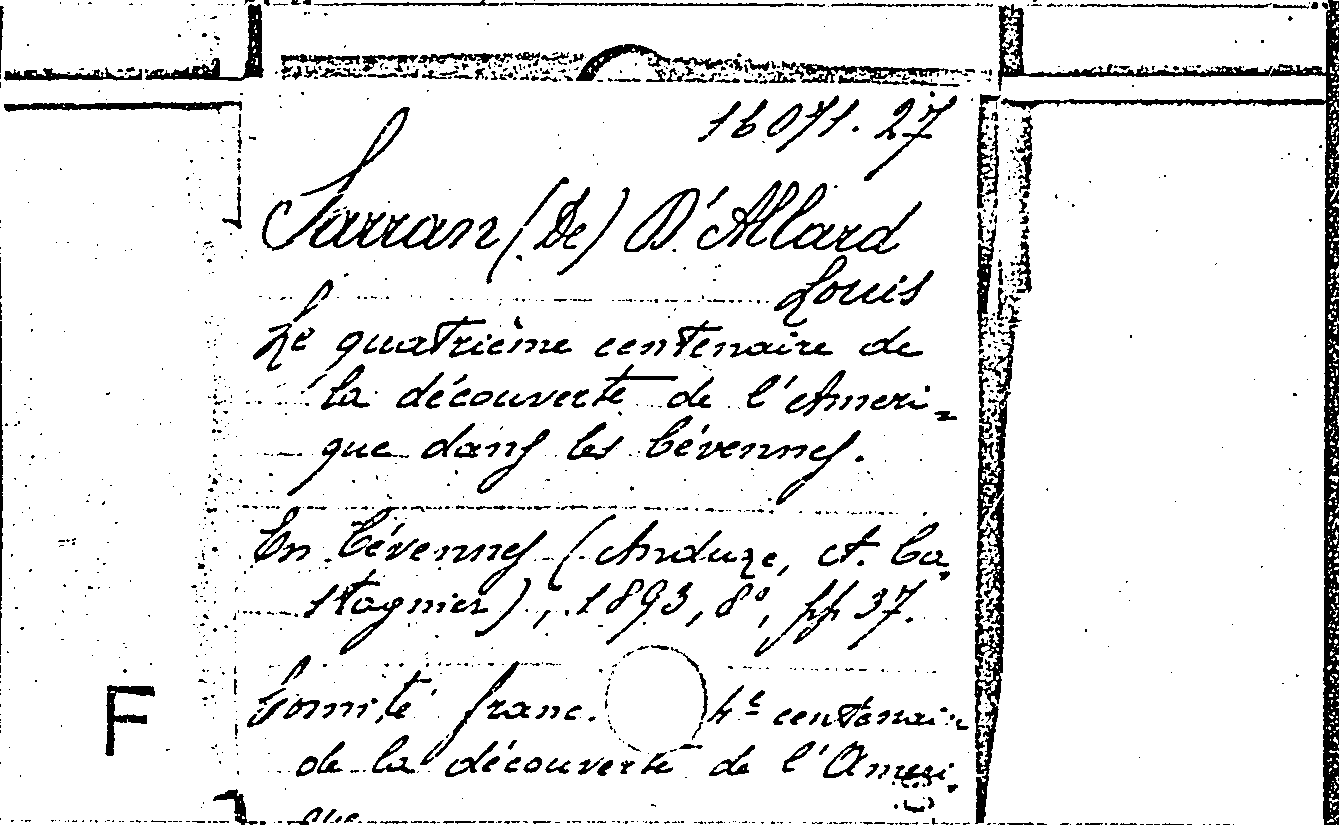 16071. 27
Sarran (De) D'Allard
Louis
Le quatrième centenaire de
la découverte de l'Ameri=
que dans les Cévennes.
En Cévennes (Anduze, A. Ca-
stagnier), 1893, 8°, pp 37.
F
Comité franc. 4e centenair
de la découverte de l'Ameri-
que